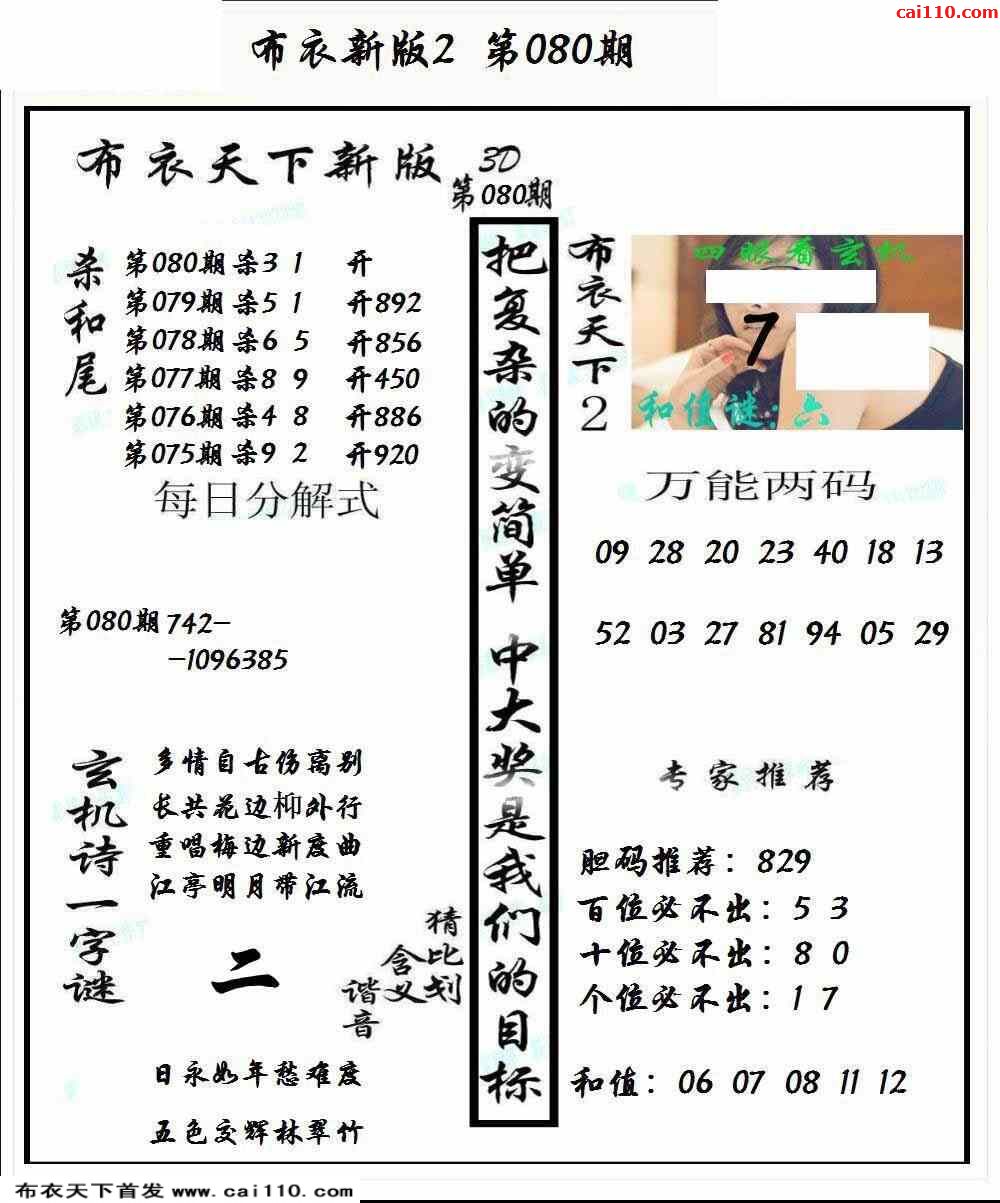 cai110.com
布衣新版2 第080期
布衣天下新版
3D
第080期
杀和尾
第080期杀3 1 开
第079期杀5 1 开892
第078期杀6 5 开856
第077期杀8 9 开450
第076期杀4 8 开886
第075期杀9 2 开920
每日分解式
第080期742-
-1096385
玄机诗一字谜
多情自古伤离别
长共花边柳外行
重唱梅边新度曲
江亭明月带江流
二
猜比划
含义
谐音
日永如年愁难度
五色交辉林翠竹
把复杂的变简单 中大奖是我们的目标
布衣天下2
四眼看玄机
7
和值谜:六
万能两码
09 28 20 23 40 18 13
52 03 27 81 94 05 29
专家推荐
胆码推荐：829
百位必不出：5 3
十位必不出：8 0
个位必不出：1 7
和值：06 07 08 11 12
布衣天下首发 www.cai110.com